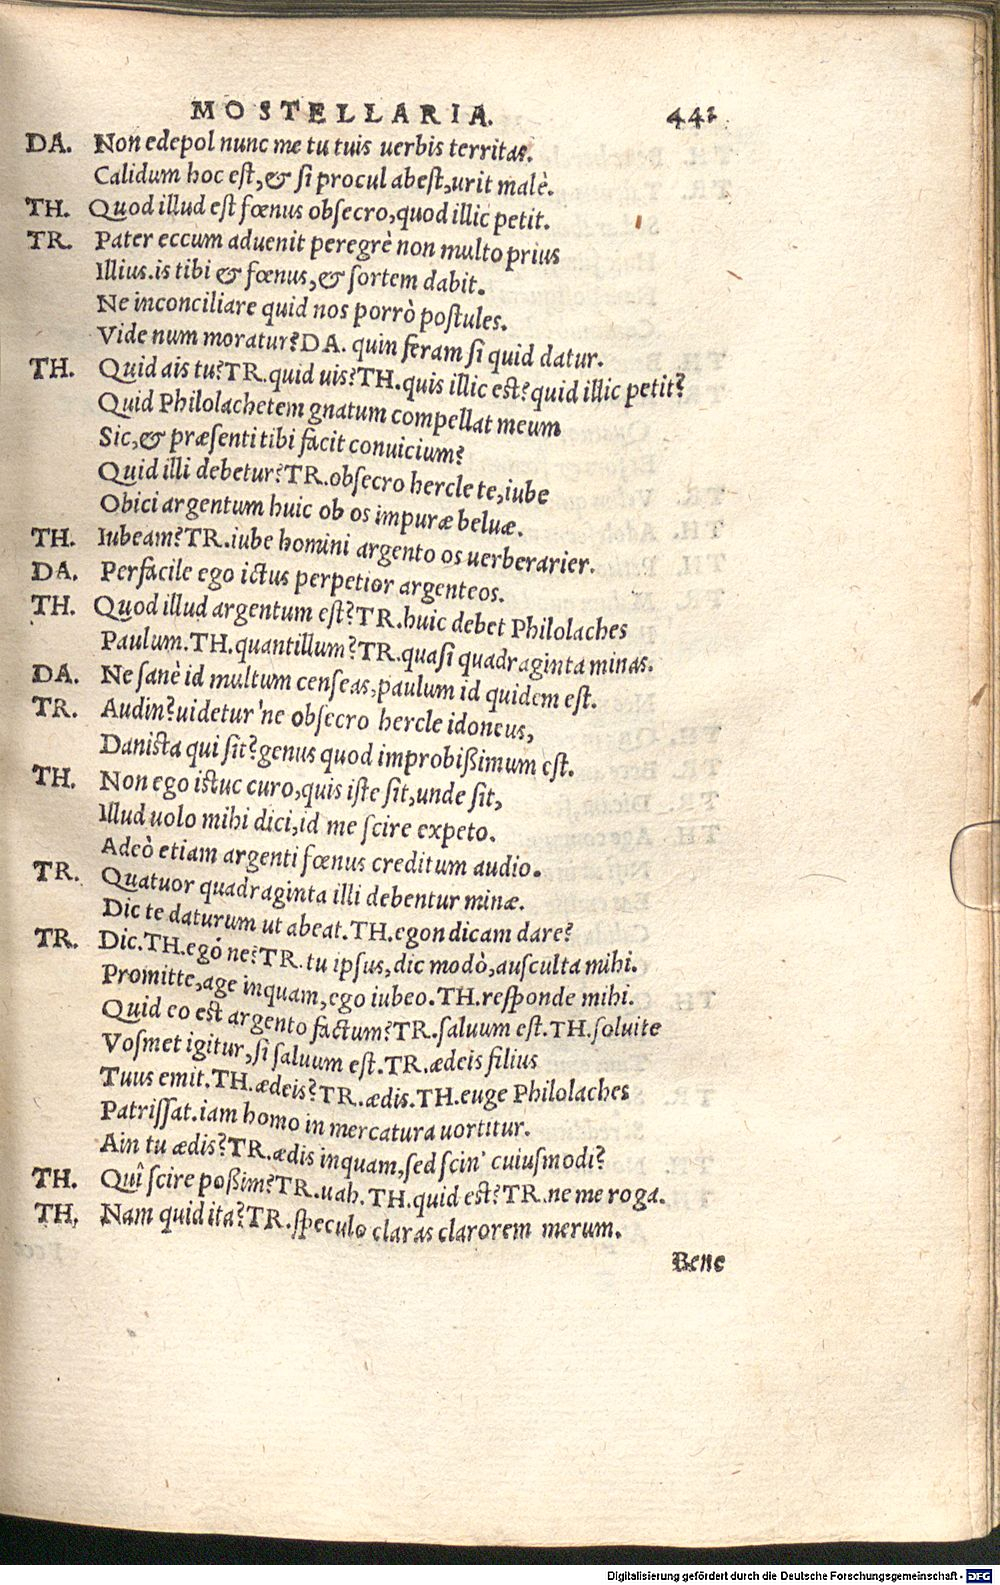 MOSTELLARIA. 441
DA. Non edepol nunc me tu tuis uerbis territas.
Calidum hoc est,& si procul abest,urit malè.
TH. Quod illud est fœnus obsecro,quod illic petit.
TR. Pater eccum aduenit peregrè non multo prius
Illius.is tibi & fœnus,& sortem dabit.
Ne inconciliare quid nos porrò postules.
Vide num moratur?DA. quin feram si quid datur.
TH. Quid ais tu?TR.quid uis?TH.quis illic est?quid illic petit?
Quid Philolachetem gnatum compellat meum
Sic,& præsenti tibi facit conuicium?
Quid illi debetur?TR.obsecro hercle te,iube
Obici argentum huic ob os impuræ beluæ.
TH. Iubeam?TR.iube homini argento os uerberarier.
DA. Perfacile ego ictus perpetior argenteos.
TH. Quod illud argentum est?TR.huic debet Philolaches
Paulum.TH.quantillum?TR.quasi quadraginta minas.
DA. Ne sanè id multum censeas,paulum id quidem est.
TR. Audin?uidetur'ne obsecro hercle idoneus,
Danista qui sit?genus quod improbißimum est.
TH. Non ego istuc curo,quis iste sit,unde sit,
Illud uolo mihi dici,id me scire expeto.
Adeò etiam argenti fœnus creditum audio.
TR. Quatuor quadraginta illi debentur minæ.
Dic te daturum ut abeat.TH.egon dicam dare?
TR. Dic.TH.egó ne?TR.tu ipsus,dic modò,ausculta mihi.
Promitte,age inquam,ego iubeo.TH.responde mihi.
Quid eo est argento factum?TR.saluum est.TH.soluite
Vosmet igitur,si saluum est.TR.ædeis filius
Tuus emit.TH.ædeis?TR.ædis.TH.euge Philolaches
Patrissat.iam homo in mercatura uortitur.
Ain tu ædis?TR.ædis inquam,sed scin' cuiusmodi?
TH. Quî scire poßim?TR.uah.TH.quid est?TR.ne me roga.
TH. Nam quid ita?TR.speculo claras clarorem merum.
Bene
Digitalisierung gefördert durch die Deutsche Forschungsgemeinschaft - DFG